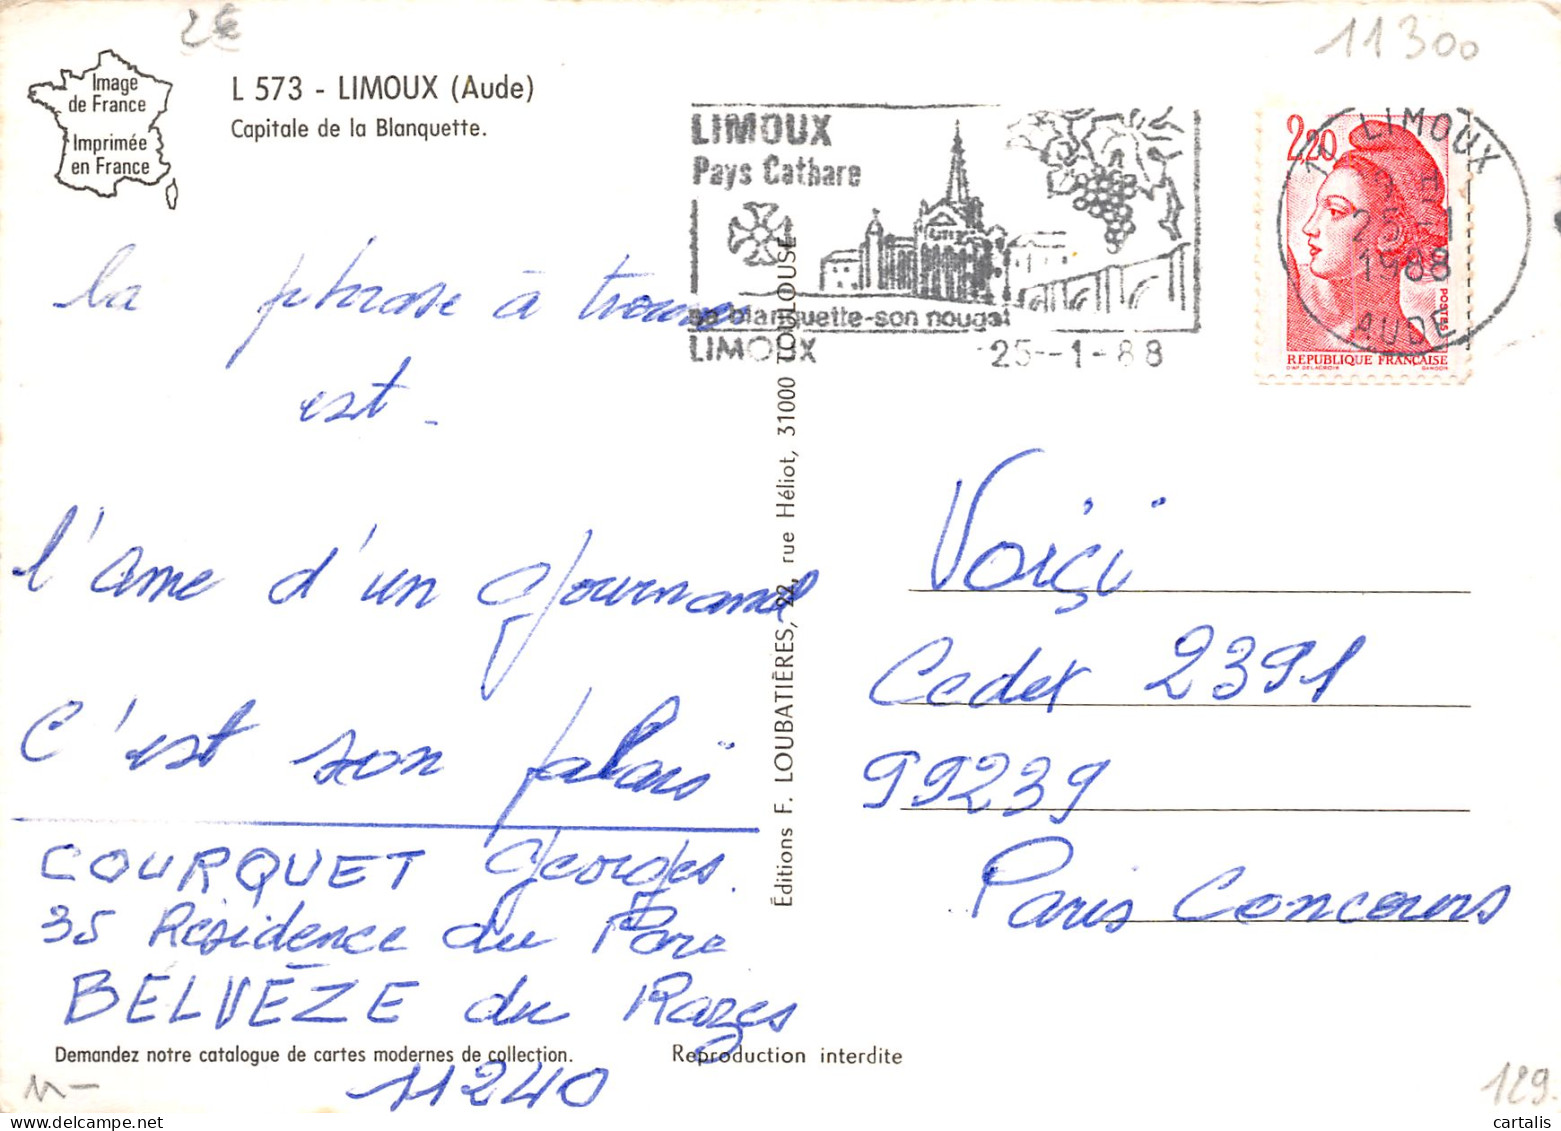 2€
11300
Image
de France
Imprimée
en France
L 573 - LIMOUX (Aude)
Capitale de la Blanquette.
LIMOUX
Pays Cathare
sa blanquette-son nougat
LIMOUX 25--1-88
2,20
POSTES
REPUBLIQUE FRANÇAISE
D'AP. DELACROIX GANDON
11 LIMOUX
25 -1
1988
AUDE
la phrase à trouver
est -
l'ame d'un gourmand
C'est son palais
COURQUET Georges.
35 Résidence du Parc
BELVÈZE du Razes
11240
Éditions F. LOUBATIÈRES, 22, rue Héliot, 31000 TOULOUSE
Voiçi
Cedex 2391
99239
Paris Concours
Demandez notre catalogue de cartes modernes de collection. Reproduction interdite
11-
129.
cartalis